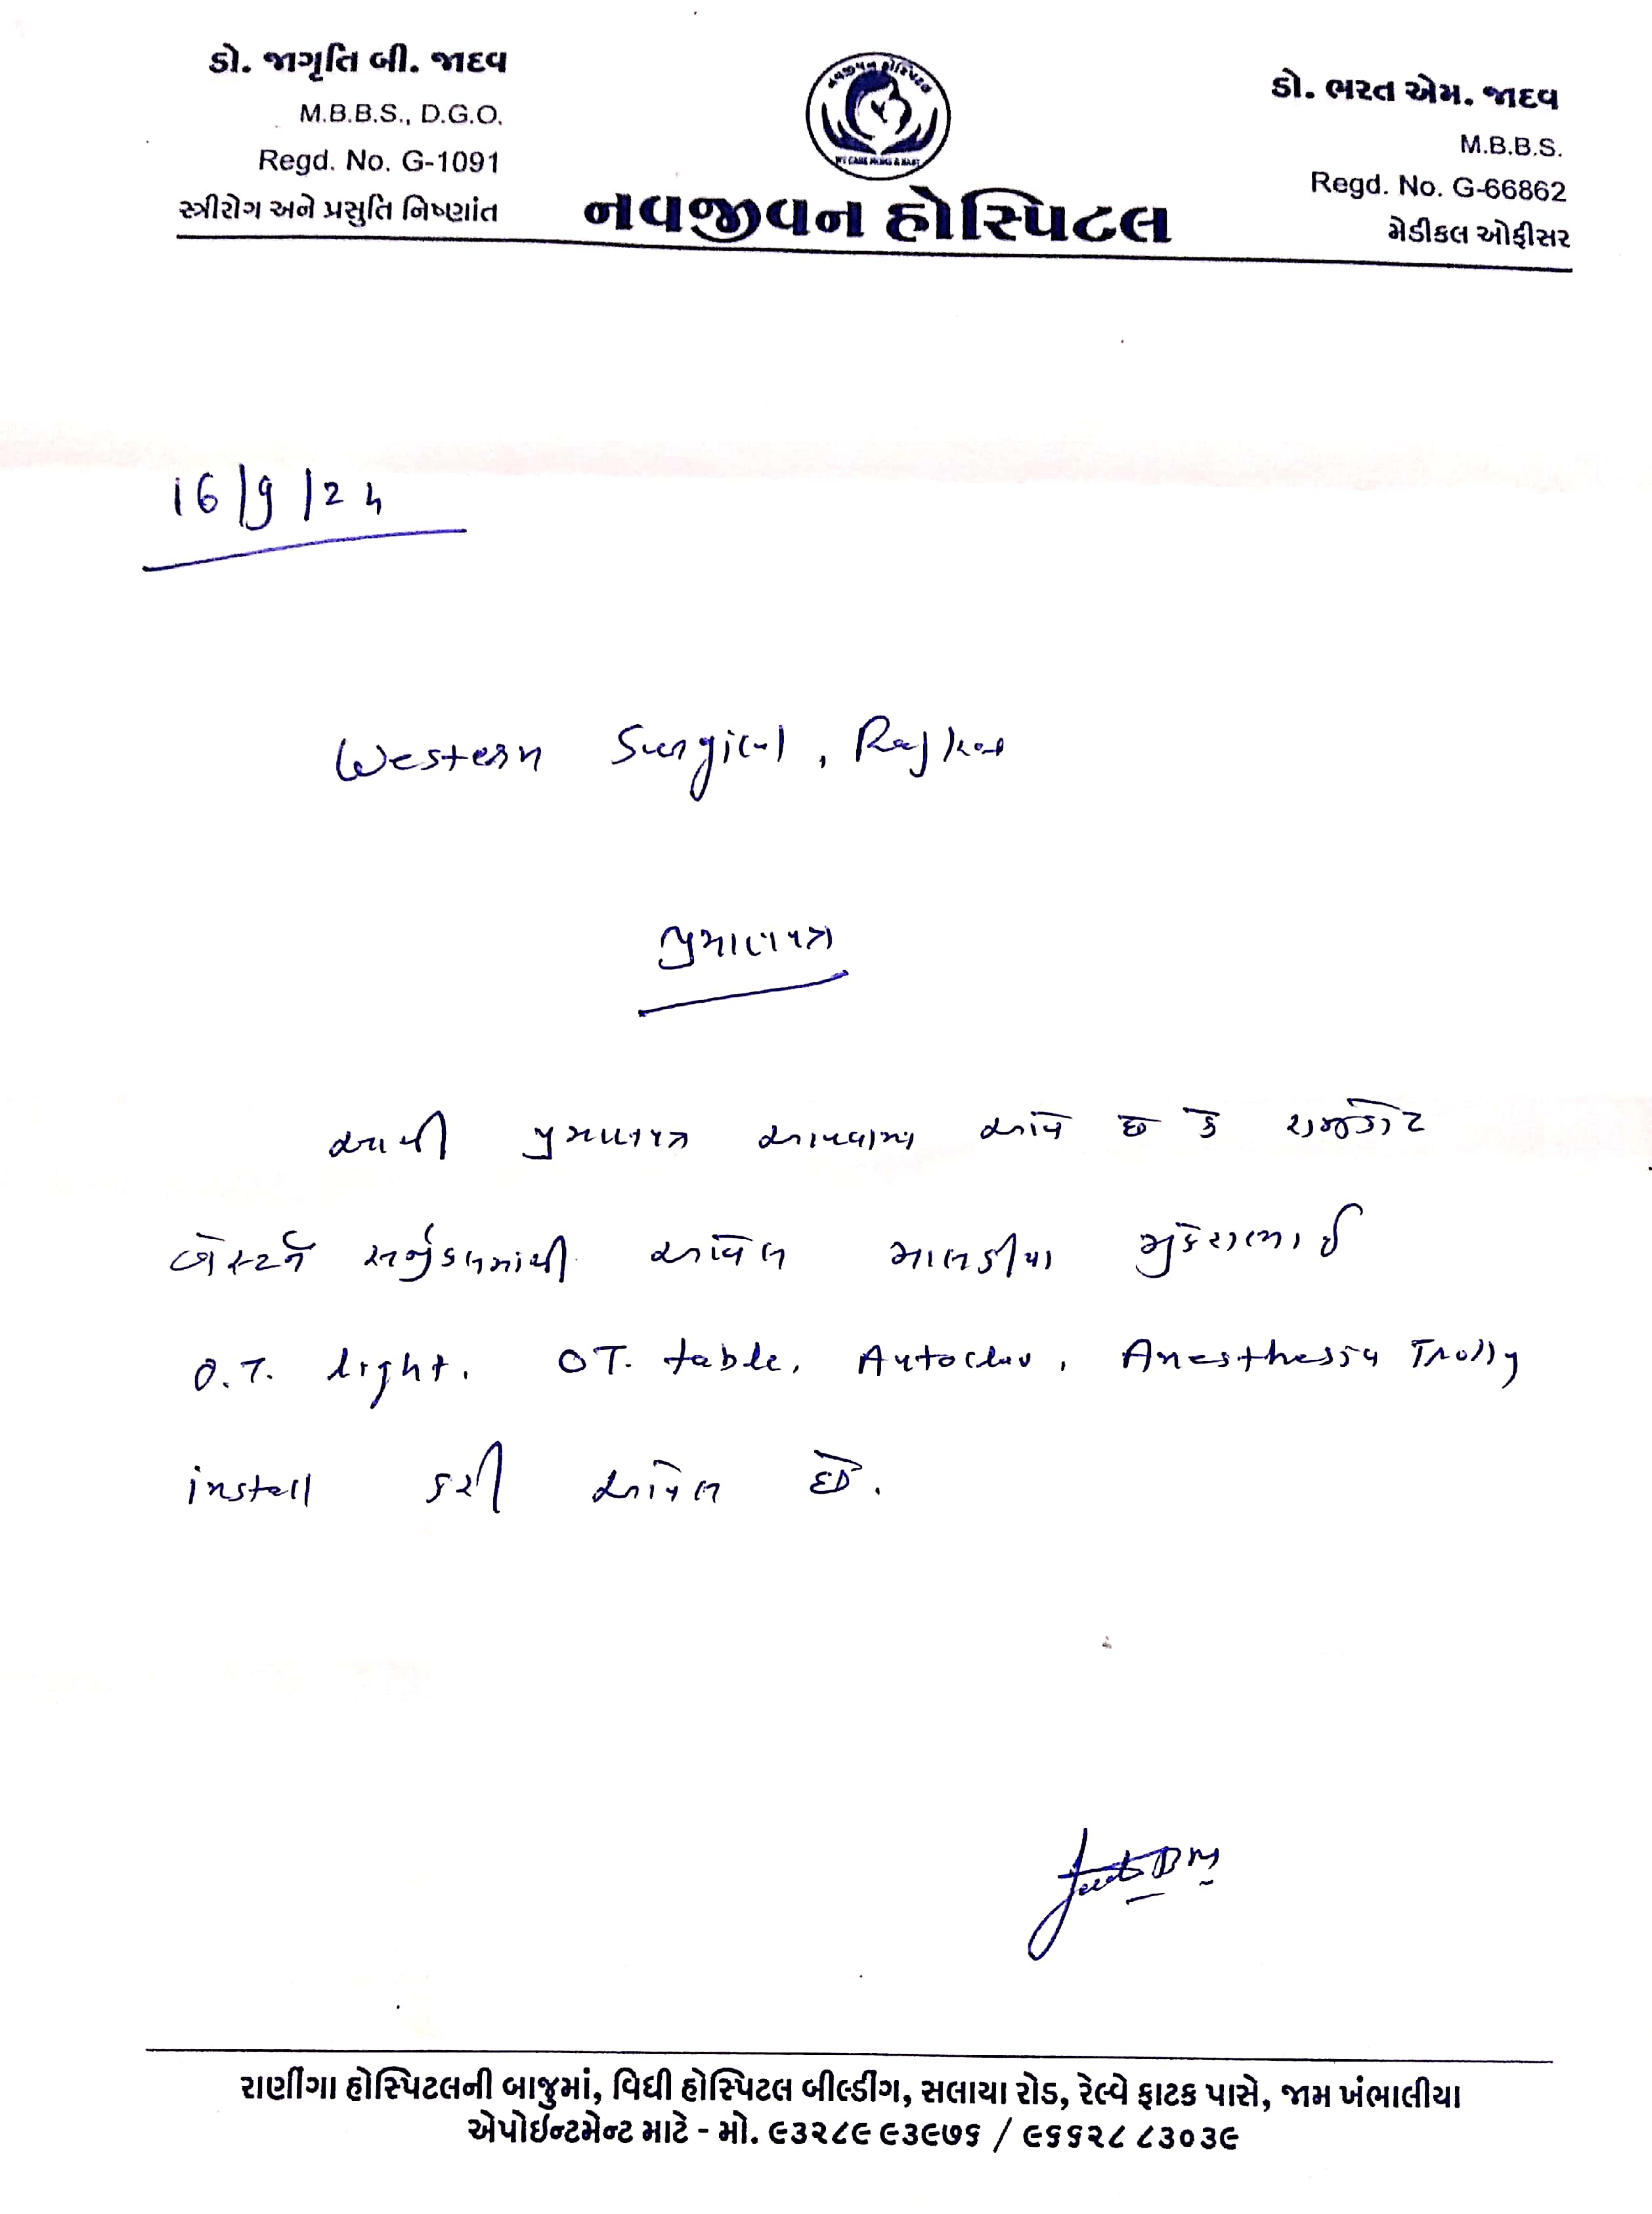 ડો. જાગૃતિ બી. જાદવ
M.B.B.S., D.G.O.
Regd. No. G-1091
સ્ત્રીરોગ અને પ્રસુતિ નિષ્ણાંત
નવજીવન હોસ્પિટલ
WE CARE MOMS & BABY
નવજીવન હોસ્પિટલ
ડો. ભરત એમ. જાદવ
M.B.B.S.
Regd. No. G-66862
મેડીકલ ઓફીસર
16/9/24
Western Surgical, Rajkot
પ્રમાણપત્ર
આથી પ્રમાણપત્ર આપવામાં આવે છે કે રાજકોટ
વેસ્ટર્ન સર્જીકલમાંથી આવેલ માલકીયા મુકેશભાઈ
O.T. light, OT. table, Autoclav, Anesthessia Trolly
install કરી આપેલ છે.
રાણીંગા હોસ્પિટલની બાજુમાં, વિધી હોસ્પિટલ બીલ્ડીંગ, સલાયા રોડ, રેલ્વે ફાટક પાસે, જામ ખંભાલીયા
એપોઇન્ટમેન્ટ માટે - મો. ૯૩૨૮૯ ૯૩૯૭૬ / ૯૬૬૨૮ ૮૩૦૩૯